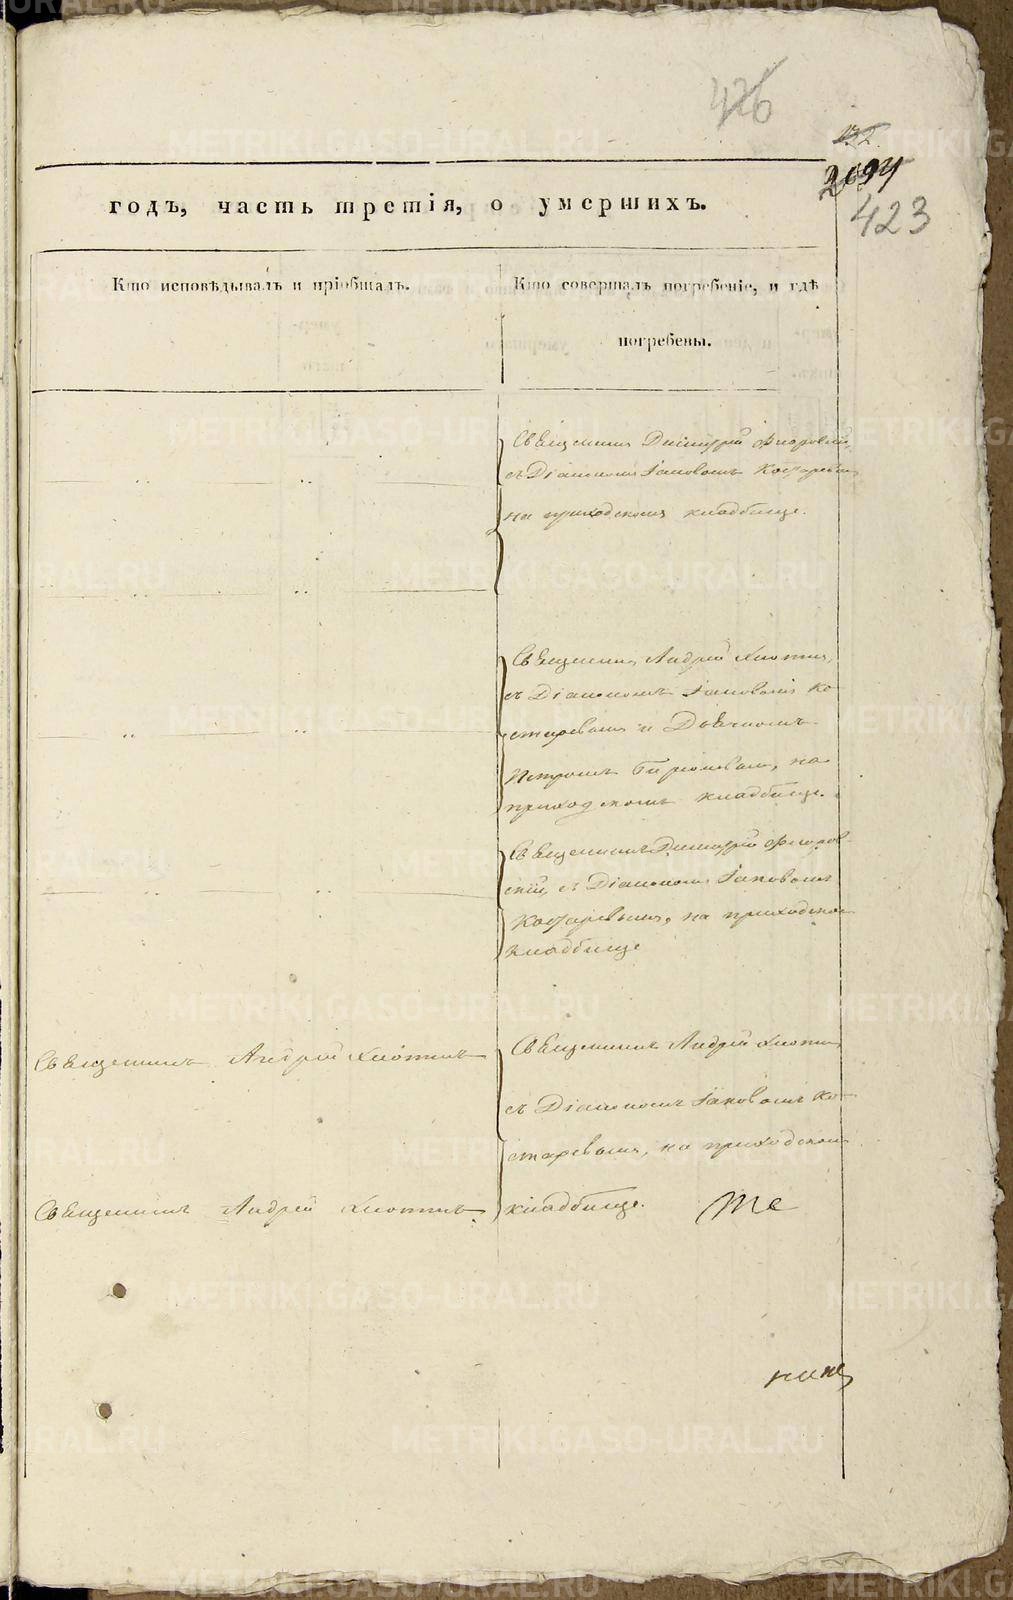 426
132.
2694
423
годъ, часть третія, о умершихъ.
Кто исповѣдывалъ и пріобщалъ.
Кто совершалъ погребеніе, и гдѣ
погребены.
Священникъ Димитрій Флоровскій,
съ Діакономъ Іаковомъ Костаревымъ
на приходскомъ кладбище.
Священникъ Андрей Хлопинъ,
съ Діакономъ Іаковомъ Ко-
старевымъ и Дьячкомъ
Петромъ на
приходскомъ кладбище.
Священникъ Димитрій Флоров-
скій, съ Діакономъ Іаковомъ
Костаревымъ, на приходскомъ
кладбище
Священникъ Андрей Хлопинъ
Священникъ Андрей Хлопинъ
съ Діакономъ Іаковомъ Ко-
старевымъ, на приходскомъ
Священникъ Андрей Хлопинъ
кладбище. Тѣ
METRIKI.GASO-URAL.RU